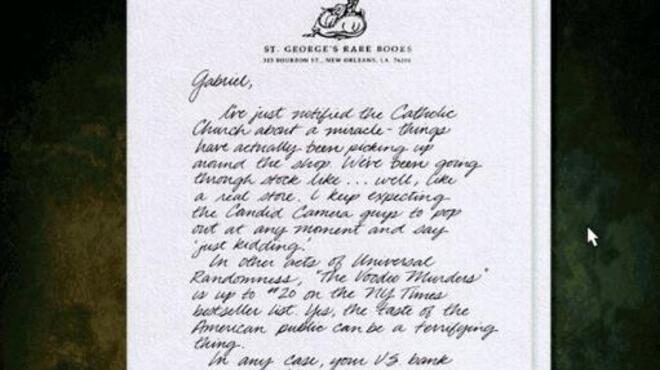 ST. GEORGE'S RARE BOOKS
BOURBON ST., NEW ORLEANS, LA.
Gabriel,
I've just notified the Catholic
Church about a miracle - things
have actually been picking up
around the shop. We've been going
through stock like ... well, like
a real store. I keep expecting
the Candid Camera guys to pop
out at any moment and say
'just kidding.'
In other acts of Universal
Randomness, "The Voodoo Murders"
is up to #20 on the NY Times
bestseller list. Yes, the taste of the
American public can be a terrifying
thing.
In any case, your U.S. bank